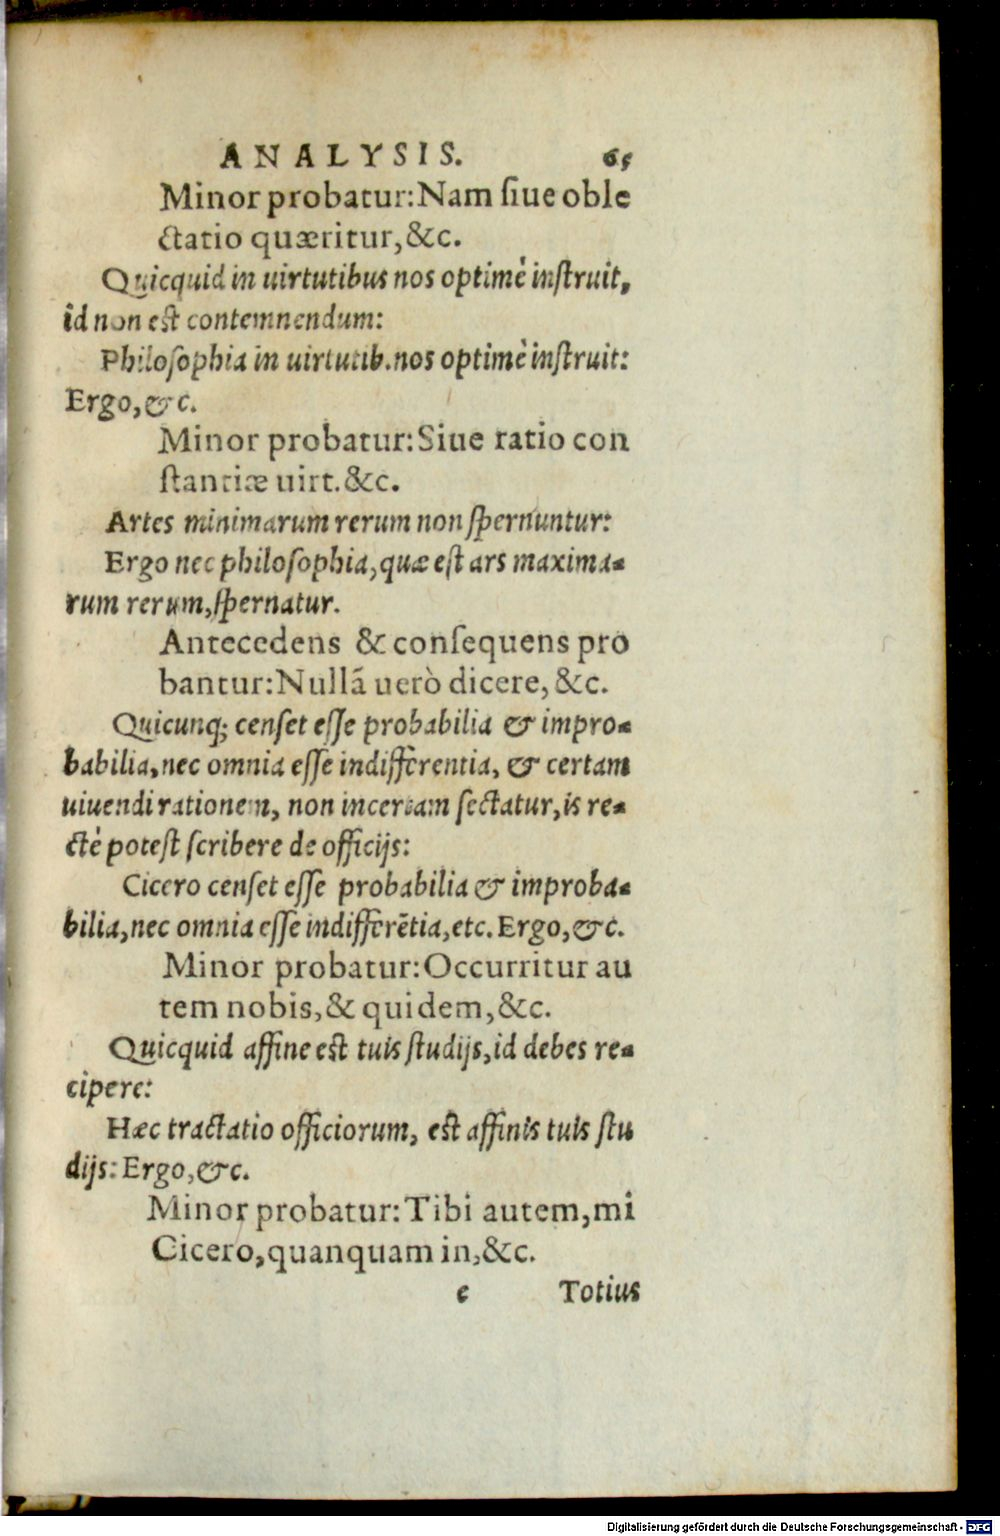 ANALYSIS. 65
Minor probatur:Nam ſiue oble
ctatio quæritur,&c.
Quicquid in uirtutibus nos optimè inſtruit,
id non est contemnendum:
Philoſophia in uirtutib.nos optimè inſtruit:
Ergo,&c.
Minor probatur:Siue ratio con
ſtantiæ uirt.&c.
Artes minimarum rerum non ſpernuntur:
Ergo nec philoſophia,quæ eſt ars maxima-
rum rerum,ſpernatur.
Antecedens & conſequens pro
bantur:Nullā uerò dicere, &c.
Quicunq; cenſet eſſe probabilia & impro-
babilia,nec omnia eſſe indifferentia, & certam
uiuendi rationem, non incertam ſectatur,is re-
ctè poteſt ſcribere de officijs:
Cicero cenſet eſſe probabilia & improba-
bilia,nec omnia eſſe indifferētia,etc.Ergo,&c.
Minor probatur:Occurritur au
tem nobis,& quidem,&c.
Quicquid affine est tuis ſtudijs,id debes re-
cipere:
Hæc tractatio officiorum, est affinis tuis ſtu
dijs:Ergo,&c.
Minor probatur:Tibi autem,mi
Cicero,quanquam in,&c.
e Totius
Digitalisierung gefördert durch die Deutsche Forschungsgemeinschaft - DFG